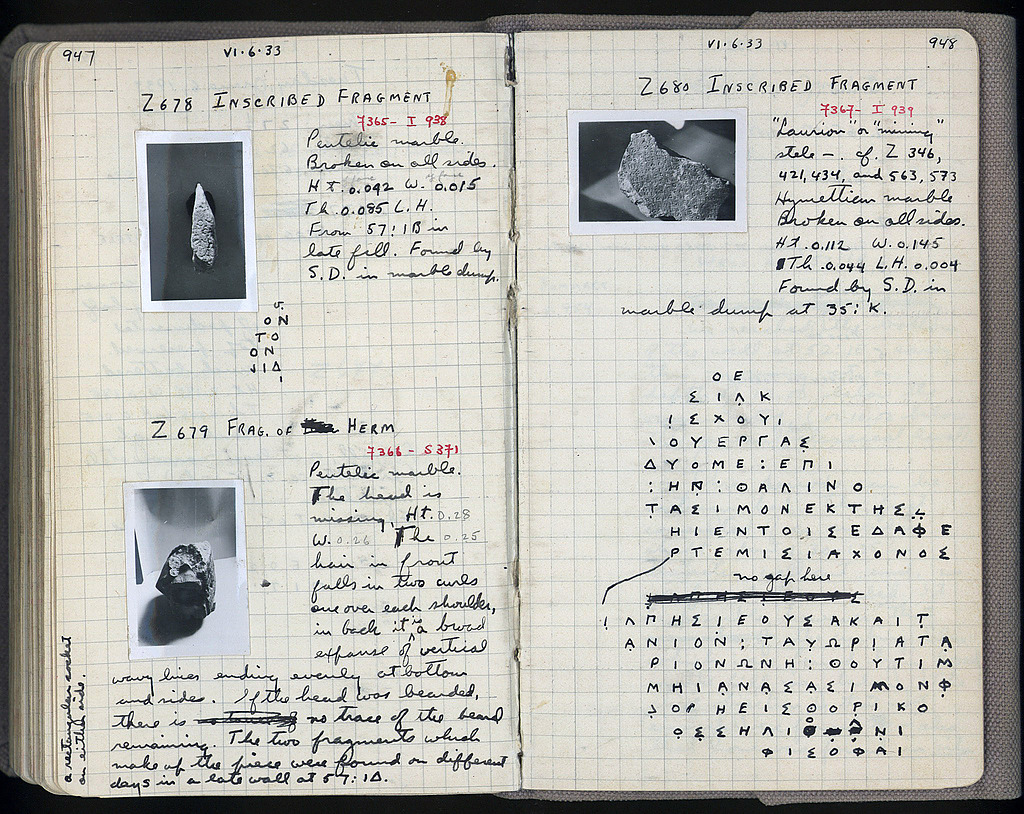 947
VI·6·33
Z 678 INSCRIBED FRAGMENT
7365 - I 938
Pentelic marble.
Broken on all sides.
Ht. 0.092 W. 0.015
Th. 0.085 L.H.
From 57:1B in
late fill. Found by
S.D. in marble dump.
Ο Ν
Τ Ο
Ο Ν
Z 679 FRAG. OF HERM
7366 - S 371
Pentelic marble.
The head is
missing. Ht. 0.28
W. 0.26 The 0.25
hair in front
falls in two curls
one over each shoulder,
in back it is a broad
expanse of vertical
wavy lines ending evenly at bottom
and sides. If the head was bearded,
there is no trace of the beard
remaining. The two fragments which
make up the piece were found on different
days in a late wall at 57:1Δ.
a rectangular socket
on either side.
VI·6·33
948
Z 680 INSCRIBED FRAGMENT
7367 - I 939
"Laurion" or "mining"
stele —. cf. Z 346,
421, 434, and 563, 573
Hymettian marble
Broken on all sides.
Ht. 0.112 W. 0.145
Th. 0.044 L.H. 0.004
Found by S.D. in
marble dump at 35:K.
Ο Ε
Σ Ι Λ Κ
Ι Σ Χ Ο Υ Ι
\ Ο Υ Ε Ρ Γ Α Σ
Δ Υ Ο Μ Ε : Ε Π Ι
: Η Ν : Θ Α Λ Ι Ν Ο
Τ Α Σ Ι Μ Ο Ν Ε Κ Τ Η Σ
Η Ι Ε Ν Τ Ο Ι Σ Ε Δ Α Φ Ε
Ρ Τ Ε Μ Ι Σ Ι Α Χ Ο Ν Ο Σ
no gap here
Ι Λ Π Η Σ Ι Ε Ο Υ Σ Α Κ Α Ι Τ
Α Ν Ι Ο Ν : Τ Α Υ Ω Ρ Ι Α Τ Α
Ρ Ι Ο Ν Ω Ν Η : Θ Ο Υ Τ Ι Μ
Μ Η Ι Α Ν Α Σ Α Σ Ι Μ Ο Ν Φ
Ο Ρ Η Ε Ι Σ Θ Ο Ρ Ι Κ Ο
Ο Σ Σ Η Λ Ι Ν Ι
Φ Ι Σ Ο Φ Α Ι